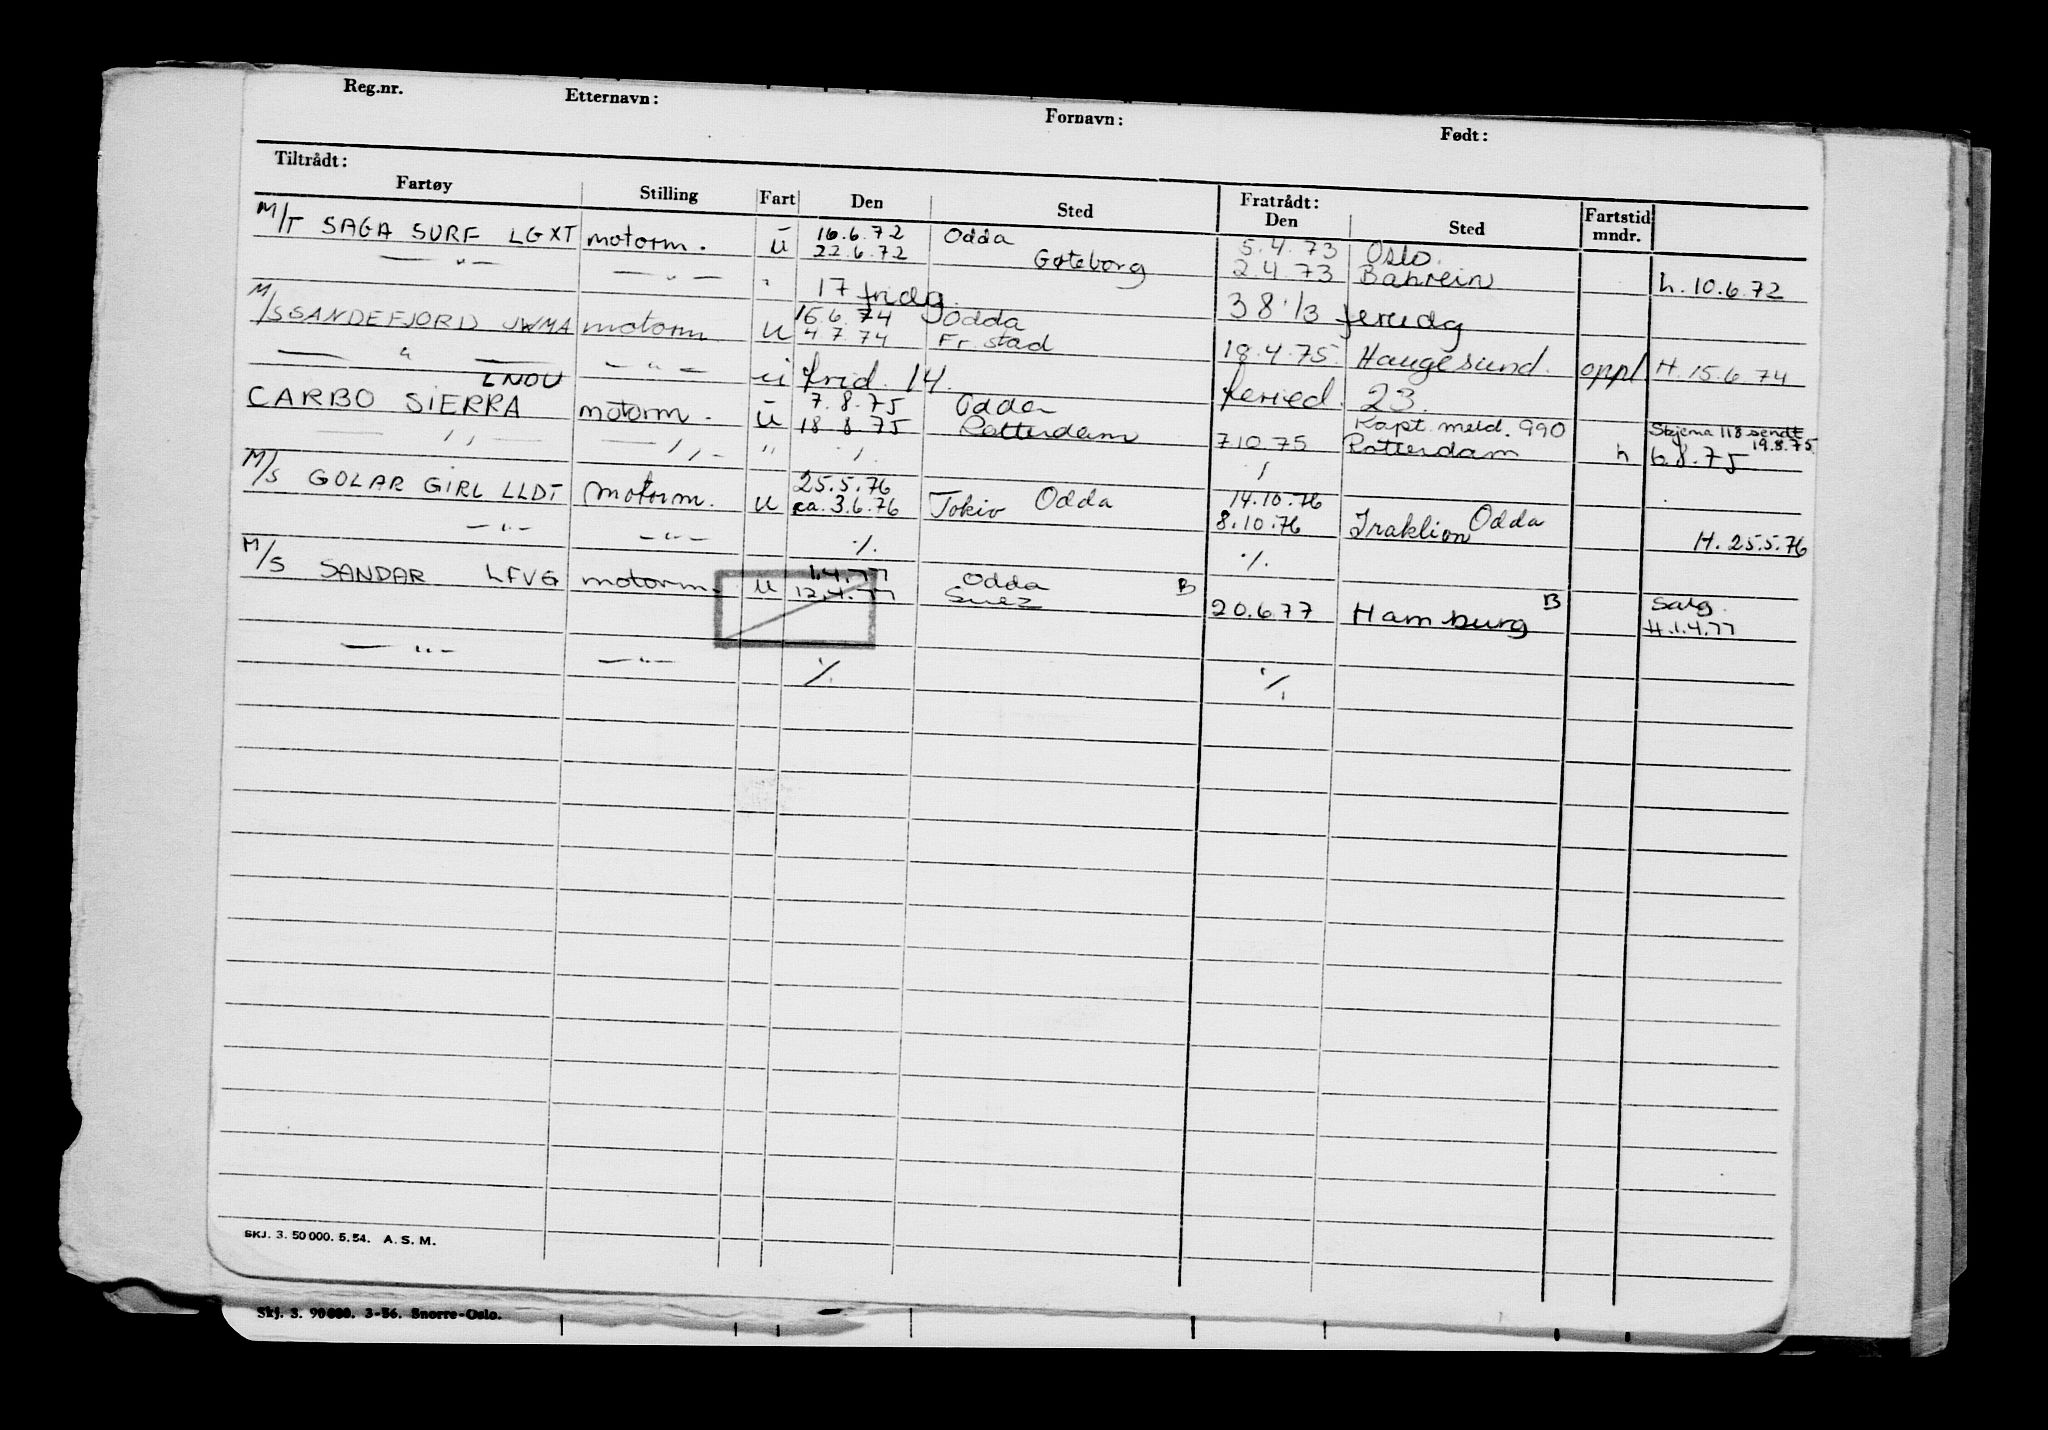 Reg.nr. Etternavn: Fornavn: Født:
Tiltrådt: Fratrådt:
Fartøy Stilling Fart Den Sted Den Sted Fartstid mndr.
M/T SAGA SURF LGXT motorm. U 16.6.72 Odda 5.4.73 Oslo.
— " — — " — " 22.6.72 Gøteborg 2.4.73 Bahrein h. 10.6.72
17 fridg. 38 1/3 feriedg
M/S SANDEFJORD JWMA motorm U 15.6.74 Odda
4.7.74 Fr.stad 18.4.75. Haugesund. oppl H. 15.6.74
— " — — " — u frid. 14. feried. 23.
LNOU
CARBO SIERRA motorm. U 7.8.75 Odda Kapt. meld. 990 Skjema 118 sendt 19.8.75.
18 8 75 Rotterdam 7.10.75 Rotterdam h 6.8.75
— ,, — — ,, — " ./. /
M/S GOLAR GIRL LLDT motorm. U 25.5.76 Odda 14.10.76 Odda
ca. 3.6.76 Tokio 8.10.76 Iraklion H. 25.5.76
— " — — " — ./. ./.
M/S SANDAR LFVG motorm. U 1.4.77 Odda B
12.4.77 Suez 20.6.77 Hamburg B Salg.
H. 1.4.77
— " — — " — ./. ./.
SKJ. 3. 50 000. 5.54. A. S. M.
Skj. 3. 90 000. 3-56. Snorre-Oslo.